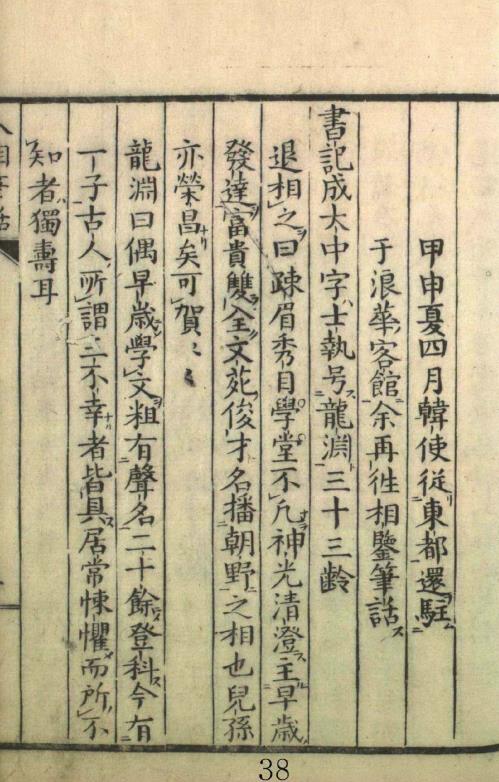 甲申夏四月韓使從東都還駐
于浪華客館余再徃相鑒筆話
書記成大中字士執号龍淵三十三齡
退相之曰疎眉秀目學堂不凡神光清澄主早歲
發達富貴雙全文苑俊才名播朝野之相也兒孫
亦榮昌矣可賀〻〻
龍淵曰偶早歲學文粗有聲名二十餘登科今有
丁子古人所謂三不幸者皆具居常悚懼而所不
知者獨壽耳
38